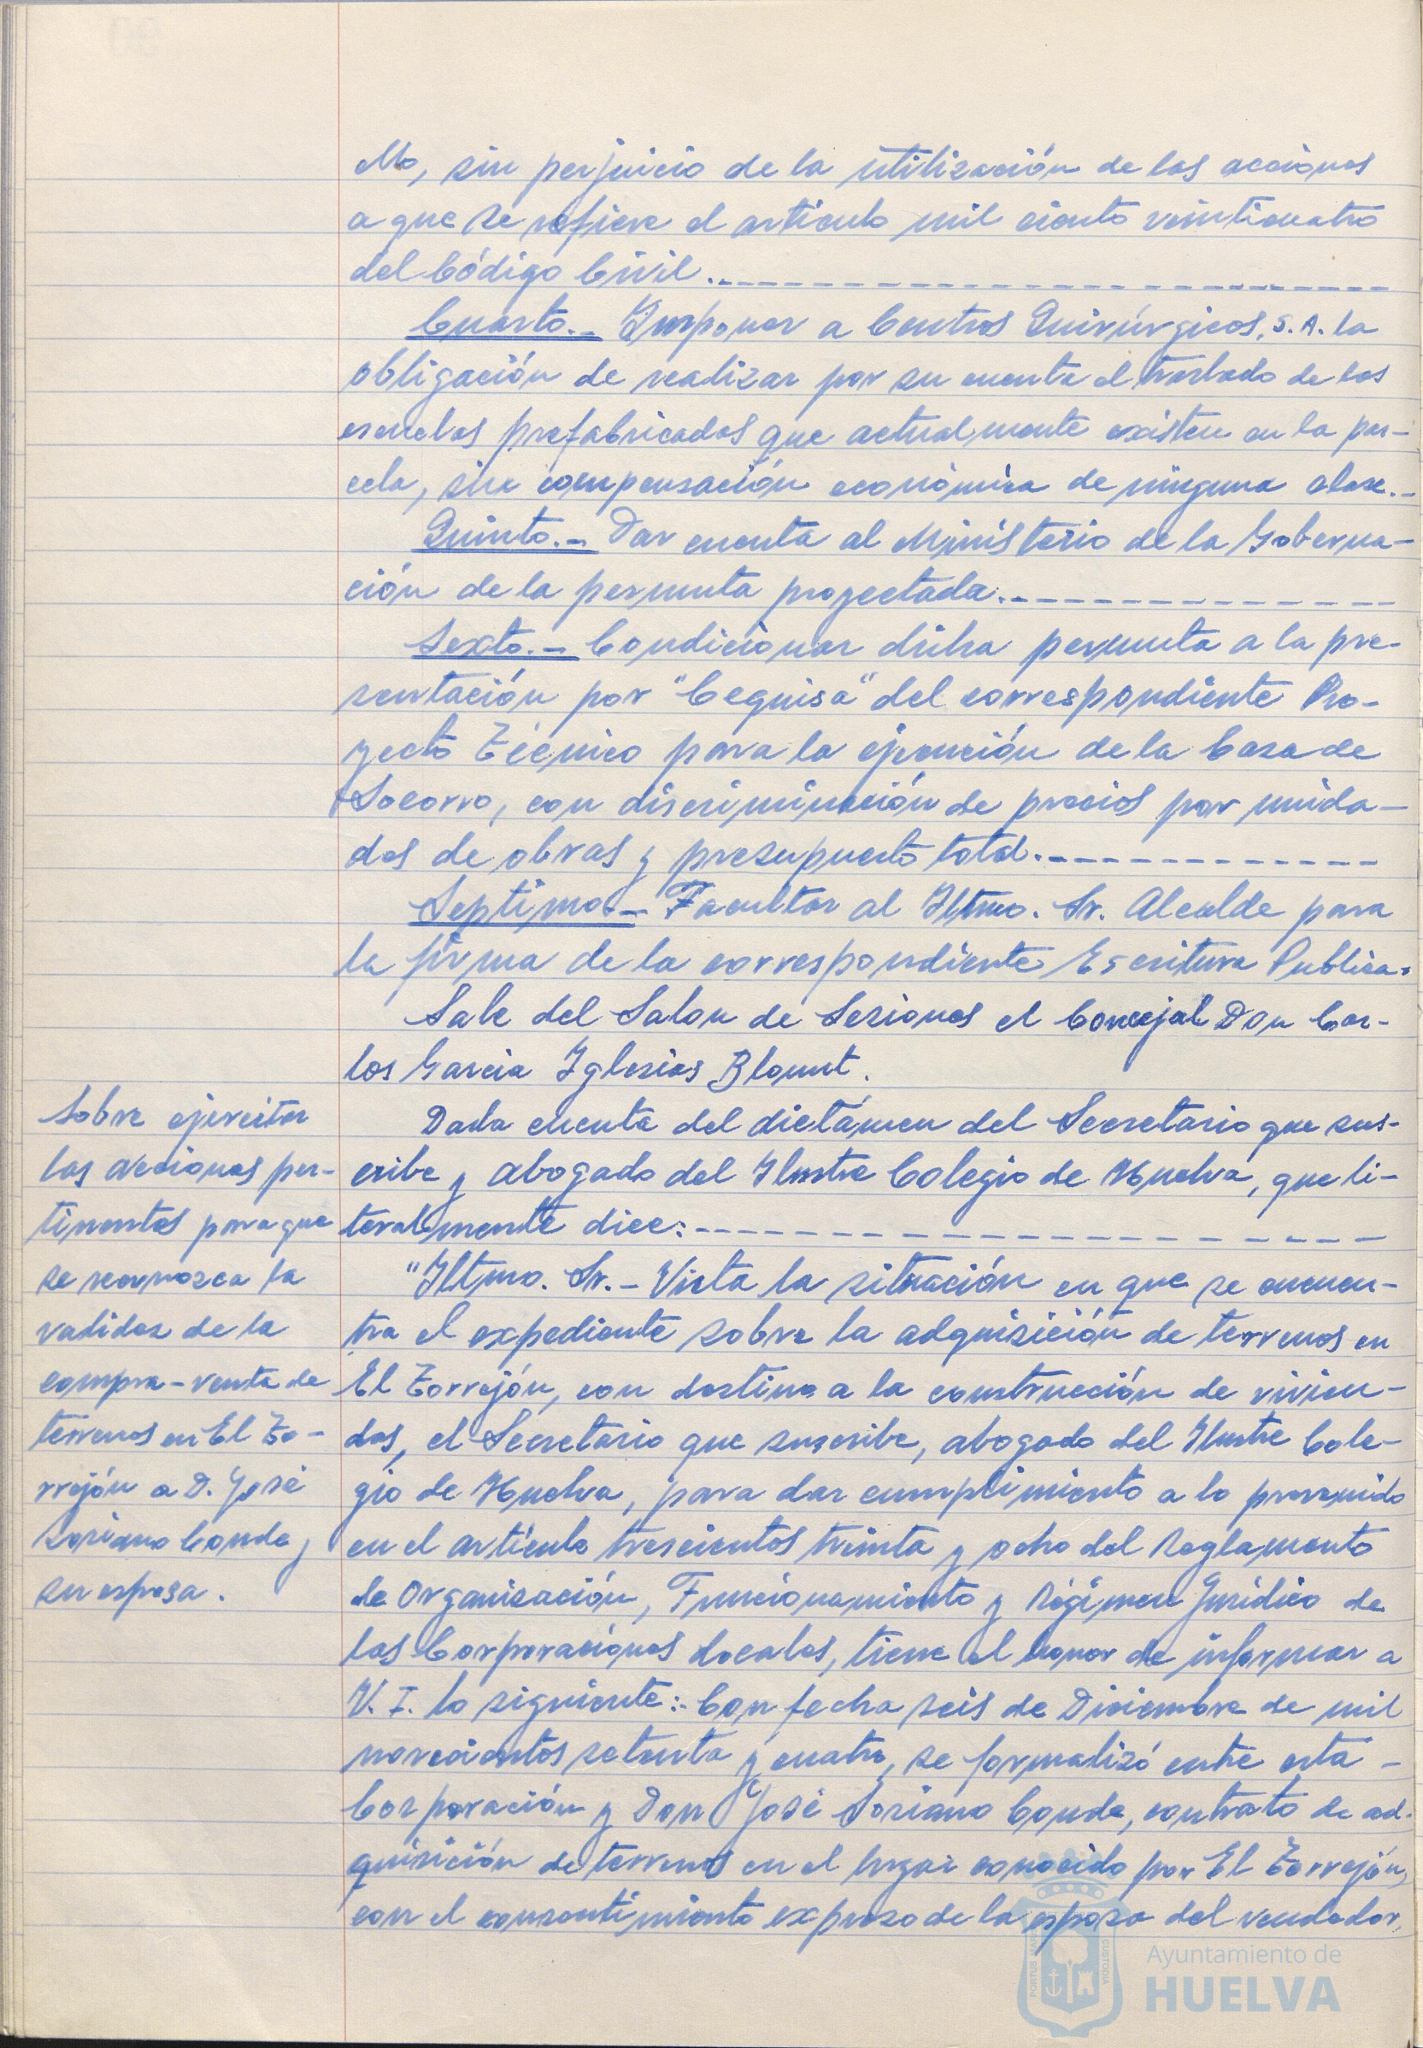 ello, sin perjuicio de la utilización de las acciones
a que se refiere el artículo mil ciento veinticuatro
del Código Civil.
Cuarto.- Imponer a Centros Quirúrgicos, S.A. la
obligación de realizar por su cuenta el traslado de las
escuelas prefabricadas que actualmente existen en la par-
cela, sin compensación económica de ninguna clase.-
Quinto.- Dar cuenta al Ministerio de la Goberna-
ción de la permuta proyectada.
Sexto.- Condicionar dicha permuta a la pre-
sentación por "Cequisa" del correspondiente Pro-
yecto Técnico para la ejecución de la Casa de
Socorro, con discriminación de precios por unida-
des de obras y presupuesto total.
Septimo.- Facultar al Iltmo. Sr. Alcalde para
la firma de la correspondiente Escritura Publica.
Sale del Salon de Sesiones el Concejal Don Car-
los Garcia Iglesias Blount.
Sobre ejercitar
las acciones per-
tinentes para que
se reconozca la
validez de la
compra-venta de
terrenos en El To-
rrejón a D. José
Soriano Conde y
su esposa.
Dada cuenta del dictámen del Secretario que sus-
cribe y abogado del Ilustre Colegio de Huelva, que li-
teralmente dice:
"Iltmo. Sr.- Vista la situación en que se encuen-
tra el expediente sobre la adquisición de terrenos en
El Torrejón, con destino a la construcción de vivien-
das, el Secretario que suscribe, abogado del Ilustre Cole-
gio de Huelva, para dar cumplimiento a lo prevenido
en el artículo trescientos treinta y ocho del Reglamento
de Organización, Funcionamiento y Régimen Jurídico de
las Corporaciones Locales, tiene el honor de informar a
V. I. lo siguiente:- Con fecha seis de Diciembre de mil
novecientos setenta y cuatro, se formalizó entre esta
Corporación y Don José Soriano Conde, contrato de ad-
quisición de terrenos en el lugar conocido por El Torrejón,
con el consentimiento expreso de la esposa del vendedor,
PORTUS MARIS
CUSTODIA
Ayuntamiento de
HUELVA